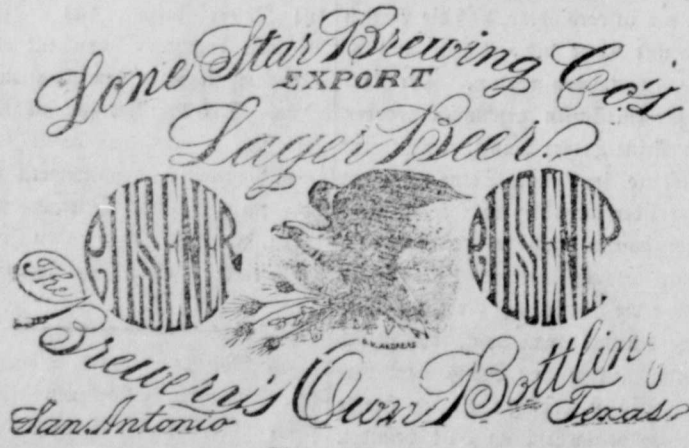 Lone Star Brewing Co's
EXPORT
Lager Beer.
The
Brewery's Own Bottling
San Antonio
Texas